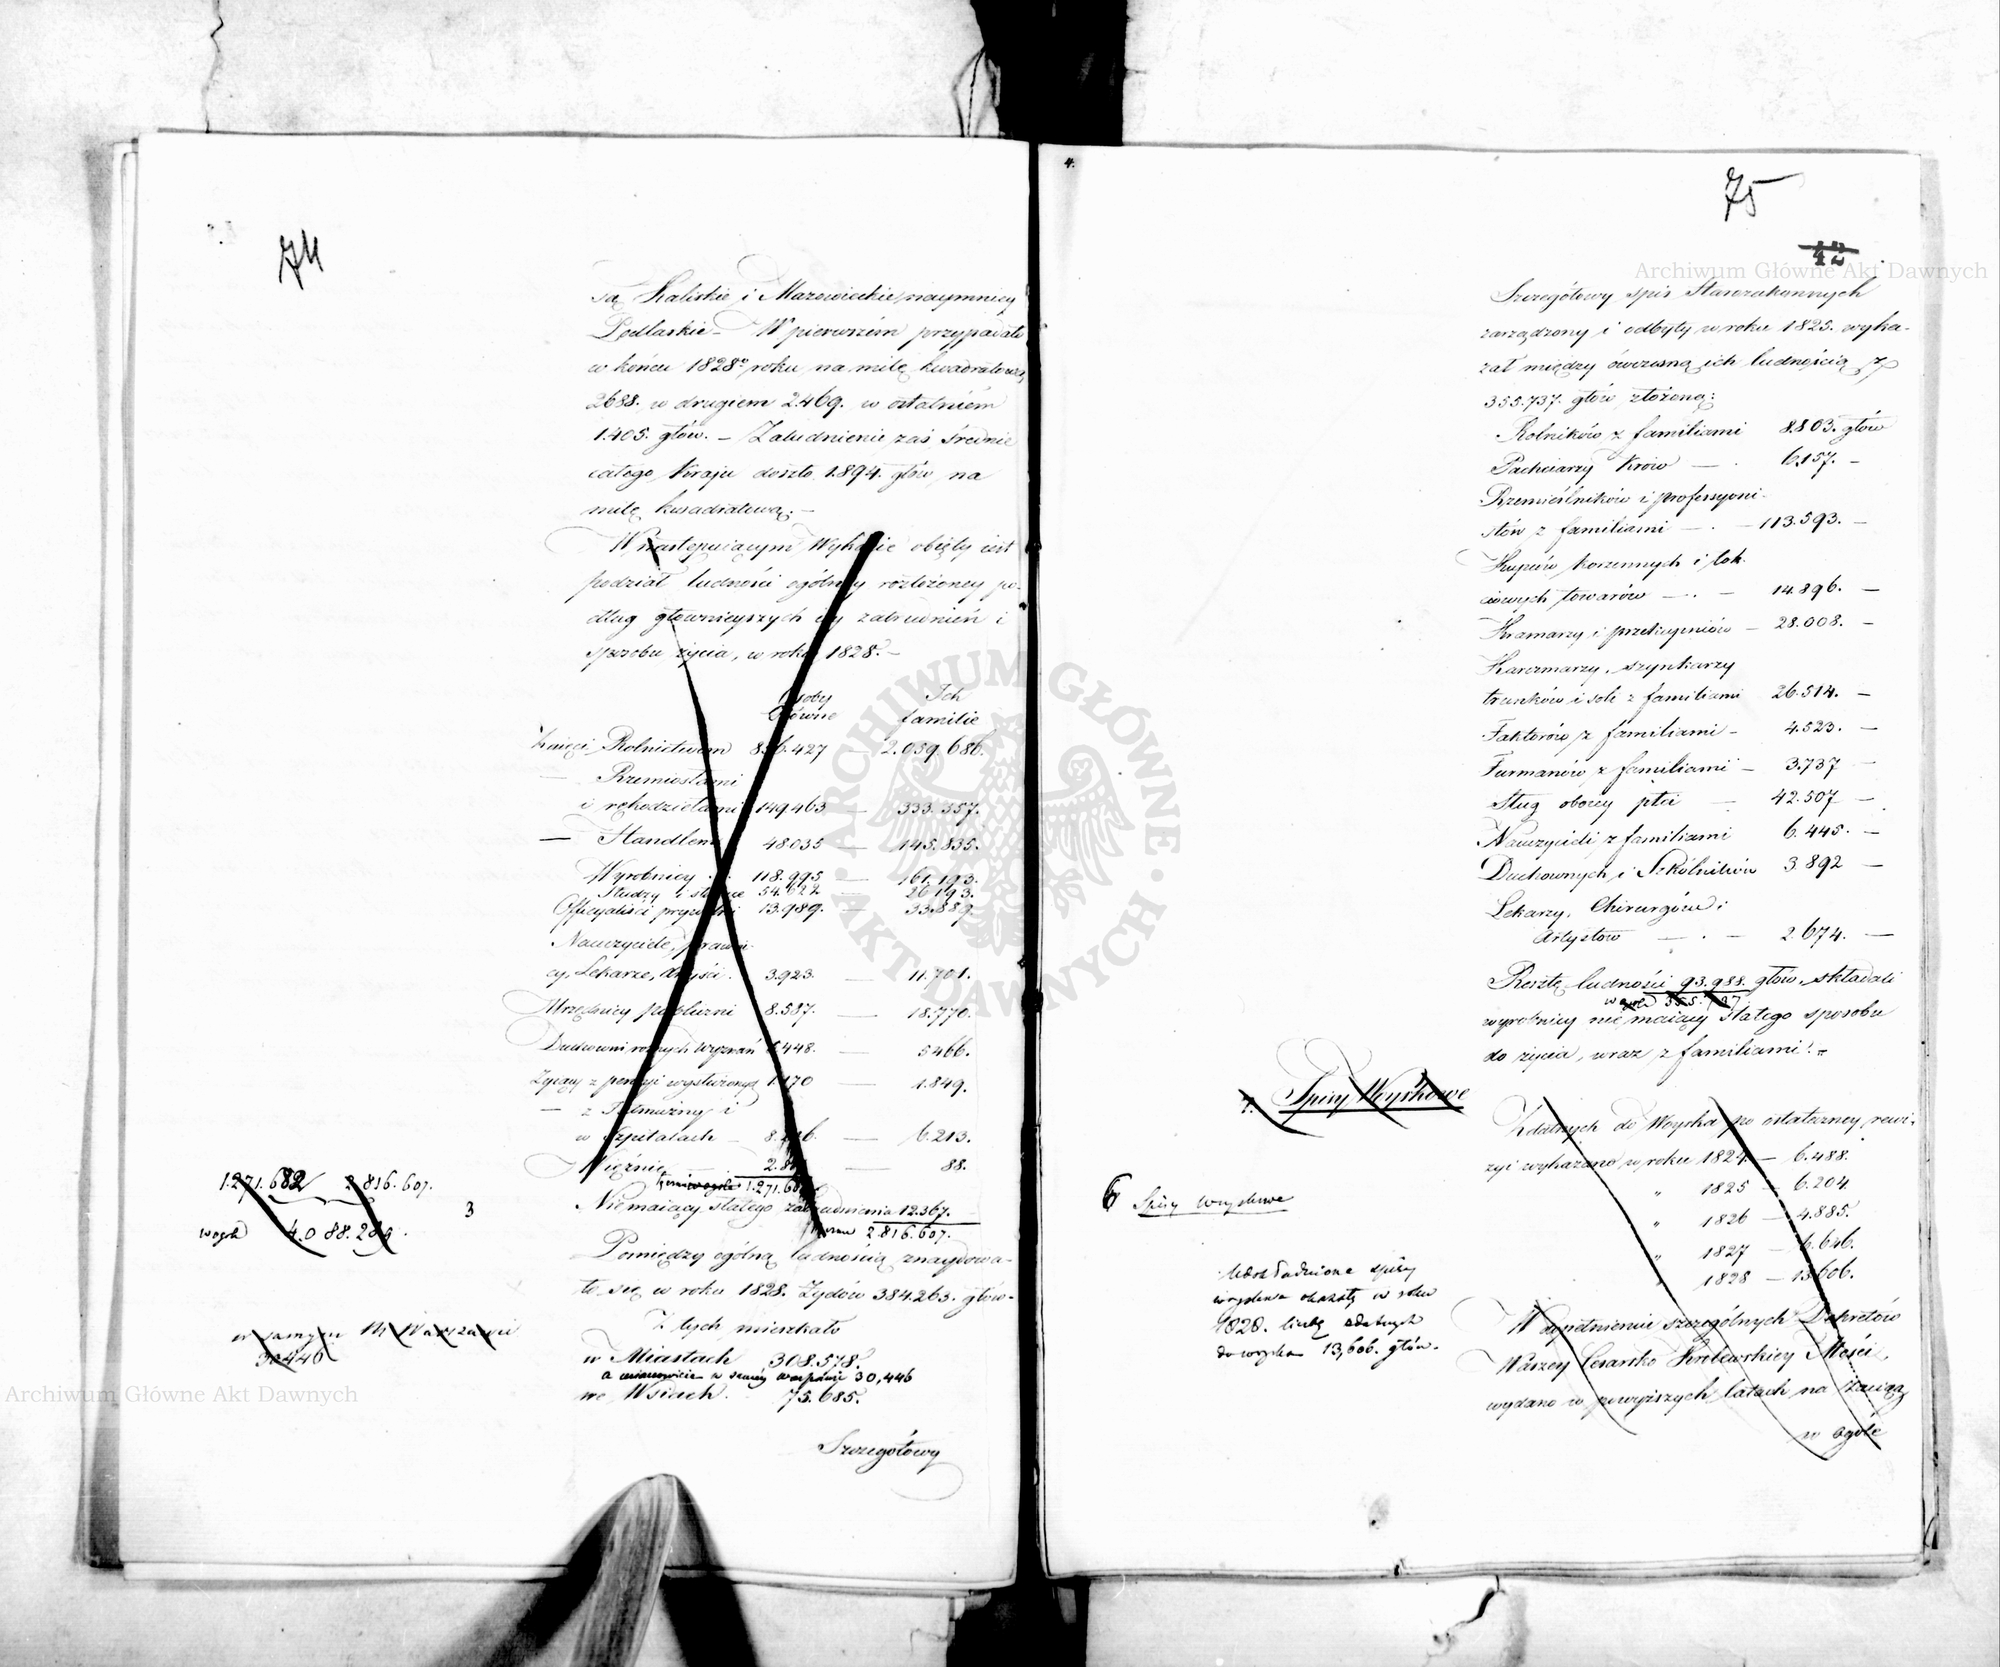 74
są Kaliskie i Mazowieckie, naymniey
Podlaskie – W pierwszém przypadało
w końcu 1828º roku, na milę kwadratową
2688. w drugiem 2.469. w ostatniém
1.405. głów. – Zaludnienie zaś średnie
całego Kraju doszło 1.894. głów na
milę kwadratową. –
W następuiącym Wykazie obięty iest
podział ludności ogólney rozłożoney po-
dług głownieyszych iey zatrudnień i
sposobu życia, w roku 1828. –
Osoby Ich
Główne familie
Zaięci Rolnictwem 856.427 — 2.059.686.
— Rzemiosłami
i rękodziełami 149.463 — 333.357.
— Handlem 48.035 — 145.835.
Wyrobnicy 118.995 — 161.193.
Słudzy i 54.622 — 26.193.
Officyaliści prywatni 13.989. — 33.889.
Nauczyciele, prawni-
cy, Lekarze, Artyści. 3.923. — 11.701.
Urzędnicy publiczni 8.587. — 18.770.
Duchowni rożnych wyznań 448. — 5466.
Żyiący z pensyi wysłużoney 1.170 — 1.849.
— z Jałmużny i
w Szpitalach — — 6.213.
Więźnie — — 88.
1.271.682 2.816.607.
3
Niemaiący stałego zatrudnienia 12.367.
2.816.607.
wogóle 4.088.289.
Pomiędzy ogólną ludnością znaydowa-
ło się w roku 1828. Żydów 384.263. głów.
Z tych mieszkało
w samym M. Warszawie
30446
w Miastach 308.578.
a mianowicie w samey Warszawie 30,446
we Wsiach. 75.685.
Szczegółowy
4.
75
42
Szczegółowy spis Starozakonnych
zarządzony i odbyty w roku 1825. wyka-
zał między ówczesną ich ludnością z
355.737. głów złożoną:
Rolników z familiami 8.803. głów
Pachciarzy Krów — . 6.157. —
Rzemieślników i professyoni-
stów z familiami — . — 113.593. —
Kupców korzennych i łok-
ciowych towarów — . — 14.896. —
Kramarzy i przekupniów — 28.008. —
Karczmarzy, szynkarzy
trunków i soli z familiami 26.514. —
Faktorów z familiami — 4.523. —
Furmanów z familiami — 3.737 —
Sług oboiey płci — 42.507 —
Nauczycieli z familiami 6.445. —
Duchownych i Szkólników 3892 —
Lekarzy, Chirurgów i
Artystów — . — 2.674. —
Resztę ludności 93.988. głów, składali
wogóle 355.737
wyrobnicy nie maiący stałego sposobu
do życia, wraz z familiami. =
7. Spisy Woyskowe
Zdatnych do Woyska po ostateczney rewi-
zyi wykazano w roku 1824. — 6.488.
" 1825 — 6.204.
" 1826 — 4.885.
" 1827 — 6.646.
" 1828 — 13.606.
6 Spisy woyskowe
spisy
woyskowe okazały w roku
1828. liczbę zdatnych
do woyska 13,606. głów.
W dopełnieniu szczególnych Dekretów
Waszey Cesarsko Królewskiey Mości,
wydano w powyższych latach na zaciąg
w ogóle
Archiwum Główne Akt Dawnych
Archiwum Główne Akt Dawnych
ARCHIWUM GŁÓWNE · AKT DAWNYCH ·